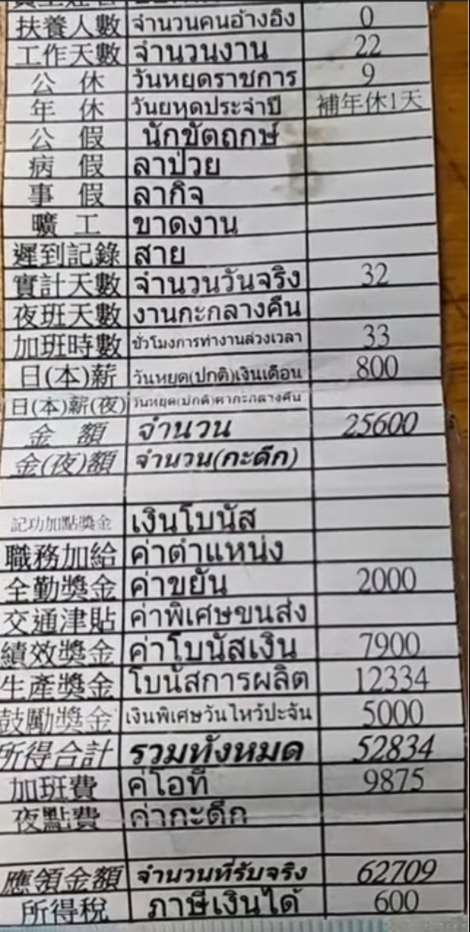 扶養人數 จำนวนคนอ้างอิง 0
工作天數 จำนวนงาน 22
公 休 วันหยุดราชการ 9
年 休 วันยหุดประจำปี 補年休1天
公 假 นักขัตฤกษ์
病 假 ลาป่วย
事 假 ลากิจ
曠 工 ขาดงาน
遲到記錄 สาย
實計天數 จำนวนวันจริง 32
夜班天數 งานกะกลางคืน
加班時數 ชั่วโมงการทำงานล่วงเวลา 33
日(本)薪 วันหยุด(ปกติ)เงินเดือน 800
日(本)薪(夜) วันหยุด(ปกติ)ค่ากะกลางคืน
金 額 จำนวน 25600
金(夜)額 จำนวน(กะดึก)
記功加點獎金 เงินโบนัส
職務加給 ค่าตำแหน่ง
全勤獎金 ค่าขยัน 2000
交通津貼 ค่าพิเศษขนส่ง
績效獎金 ค่าโบนัสเงิน 7900
生產獎金 โบนัสการผลิต 12334
鼓勵獎金 เงินพิเศษวันไหว้ปะจัน 5000
所得合計 รวมทั้งหมด 52834
加班費 ค่โอที 9875
夜點費 ค่ากะดึก
應領金額 จำนวนที่รับจริง 62709
所得稅 ภาษีเงินได้ 600